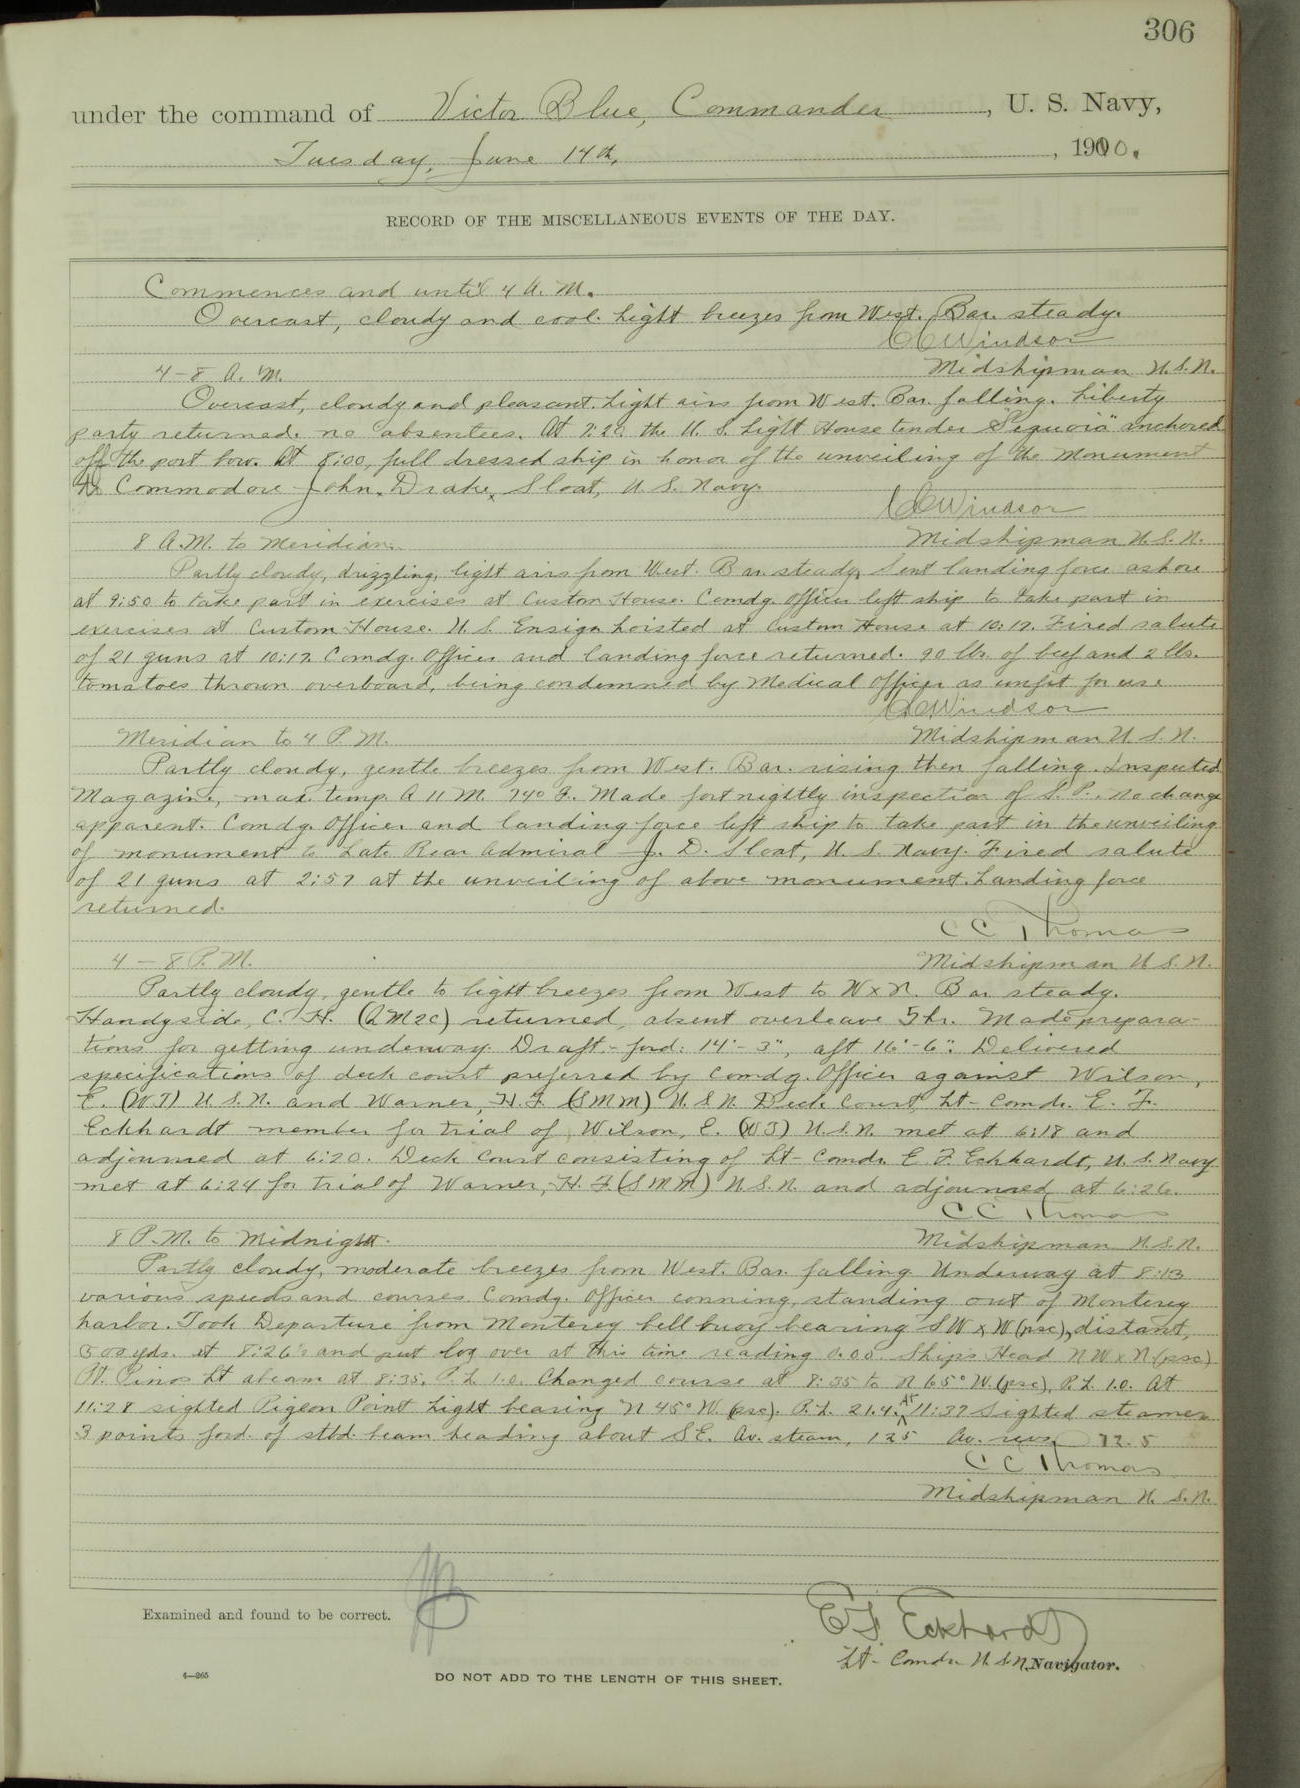 306
under the command of Victor Blue, Commander, U. S. Navy,
Tuesday, June 14th, 1910.
RECORD OF THE MISCELLANEOUS EVENTS OF THE DAY.
Commences and until 4 A. M.
Overcast, cloudy and cool. Light breezes from West. Bar. steady.
CC Windsor
4-8 A. M.
Midshipman U.S.N.
Overcast, cloudy and pleasant. Light airs from West. Bar. falling. Liberty
party returned. no absentees. At 7:20 the U. S. Light House tender "Sequoia" anchored
off the port bow. At 8:00, full dressed ship in honor of the unveiling of the monument
to Commodore John, Drake, Sloat, U. S. Navy.
CC Windsor
8 A.M. to Meridian.
Midshipman U.S.N.
Partly cloudy, drizzling, light airs from West. Bar. steady, Sent landing force ashore
at 9:50 to take part in exercises at Custom House. Comdg. Officer left ship to take part in
exercises at Custom House. U. S. Ensign hoisted at Custom House at 10:17. Fired salute
of 21 guns at 10:17. Comdg. Officer and landing force returned. 90 lbs. of beef and 2 lbs.
tomatoes thrown overboard, being condemned by Medical Officer as unfit for use.
CC Windsor
Meridian to 4 P. M.
Midshipman U.S.N.
Partly cloudy, gentle breezes from West. Bar. rising then falling. Inspected
Magazine, max. temp. A 11 M. 74° F. Made fortnightly inspection of S. P. no change
apparent. Comdg. Officer and landing force left ship to take part in the unveiling
of monument to Late Rear Admiral J. D. Sloat, U. S. Navy. Fired salute
of 21 guns at 2:57 at the unveiling of above monument. Landing force
returned.
C C Thomas
4 - 8 P. M.
Midshipman U.S.N.
Partly cloudy, gentle to light breezes from West to WxN. Bar steady.
Handyside, C. H. (QM2C) returned, absent overleave 5 hr. Made prepara-
tions for getting underway. Draft - ford: 14'-3", aft 16'-6". Delivered
specifications of deck court preferred by Comdg. Officer against Wilson,
E. (WT) U.S.N. and Warner, H. F. (SMM) U.S.N. Deck Court, Lt-Comdr. E. F.
Eckhardt member for trial of, Wilson, E. (WT) U.S.N. met at 6:18 and
adjourned at 6:20. Deck Court consisting of Lt-Comdr. E F Eckhardt, U. S. Navy
met at 6:24 for trial of Warner, H. F. (SMM) U.S.N. and adjourned at 6:26.
C C Thomas
8 P.M. to Midnight.
Midshipman U.S.N.
Partly cloudy, moderate breezes from West. Bar. falling. Underway at 8:13
various speeds and courses Comdg. Officer conning, standing out of Monterey
harbor. Took Departure from Monterey bell buoy bearing SWxW (psc), distant,
500 yds. at 8:26 and put log over at this time reading 0.00. Ship's Head NWxN (psc)
Pt. Pinos Lt abeam at 8:35. P.L. 1.0. Changed course at 8:35 to N 65° W. (psc), P.L. 1.0. At
11:28 sighted Pigeon Point Light bearing N 45° W. (psc). P.L. 21.4. At 11:37 Sighted steamer
3 points ford. of stbd. beam heading about SE. Av. steam, 125 Av. revs. 72.5
C C Thomas
Midshipman U.S.N.
Examined and found to be correct.
E. F. Eckhardt
Lt-Comdr U.S.N. Navigator.
4-265
DO NOT ADD TO THE LENGTH OF THIS SHEET.